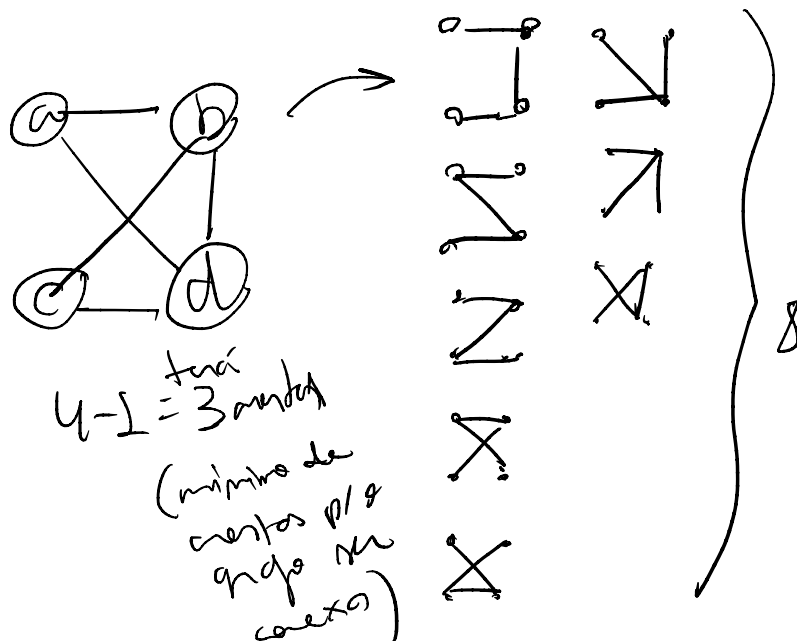 a b
c d
8
terá
4-1 = 3 arestas
(mínimo de
arestas p/ o
grafo ser
conexo)